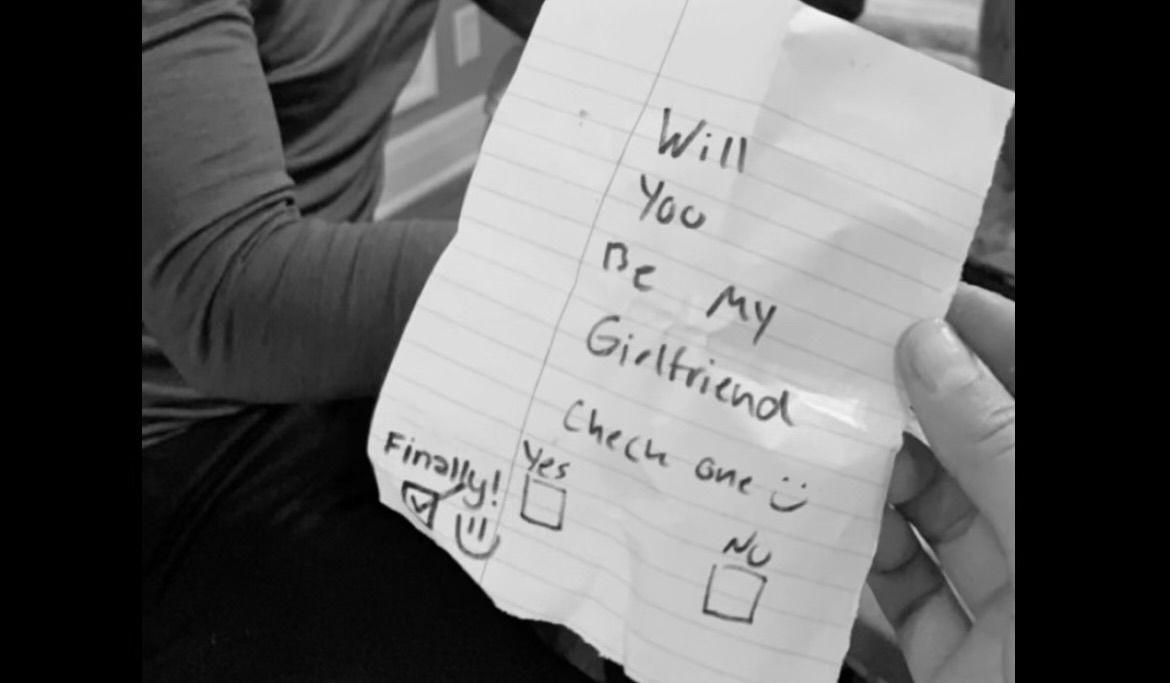 Will
You
Be My
Girlfriend
Check one
Finally!
Yes
No